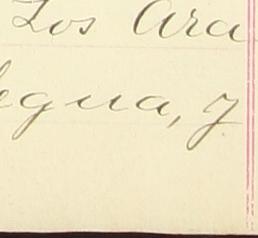 Los Ara
egua, y